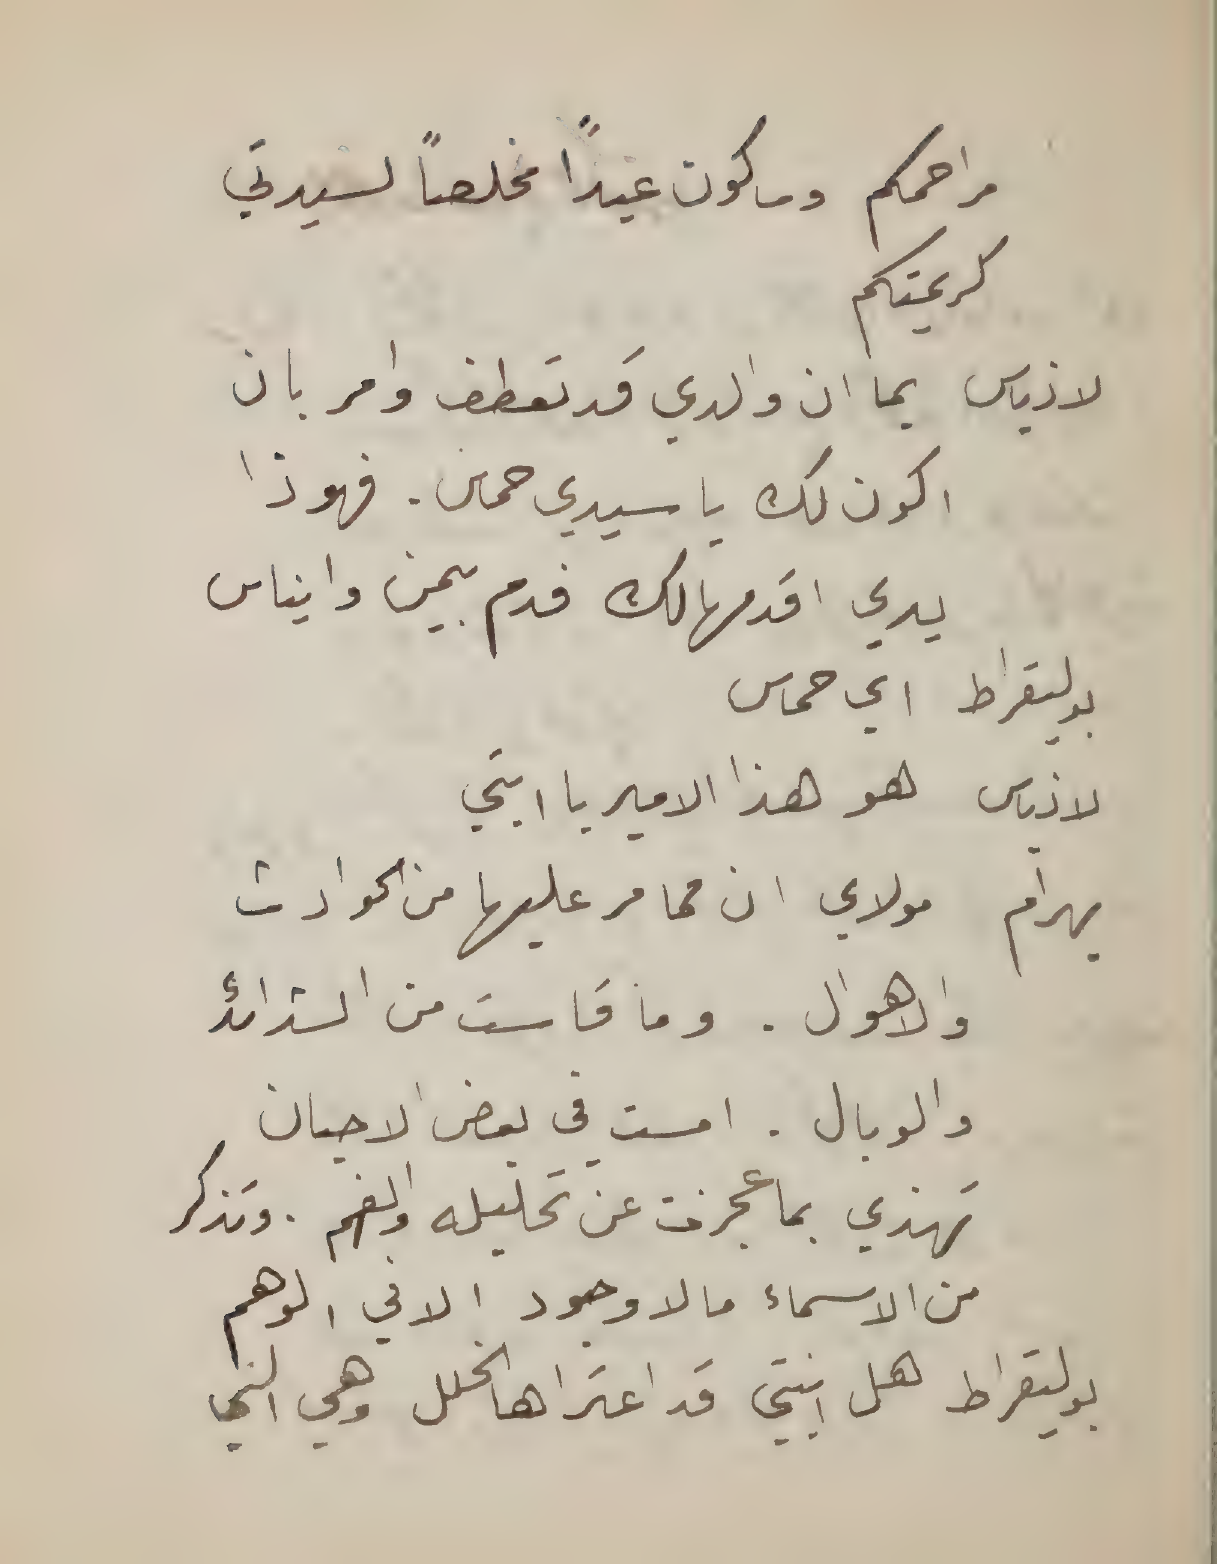 مراحمكم وساكون عبداً مخلصاً لسيدتي
كريمتكم
لاذياس بما ان والدي قد تعطف وامر بان
اكون لك يا سيدي حماس . فهوذا
يدي اقدمها لك فدم بيمن وايناس
بوليقراط اي حماس
لاذياس هو هذا الامير يا ابتي
بهرام مولاي ان مما مر عليها من الحوادث
والاهوال . وما قاست من الشدائد
والوبال . امست في بعض الاحيان
تهذي بما عجزت عن تحليله والفهم . وتذكر
من الاسماء ما لا وجود الا في الوهم
بوليقراط هل ابنتي قد اعتراها الخلل وهي التي